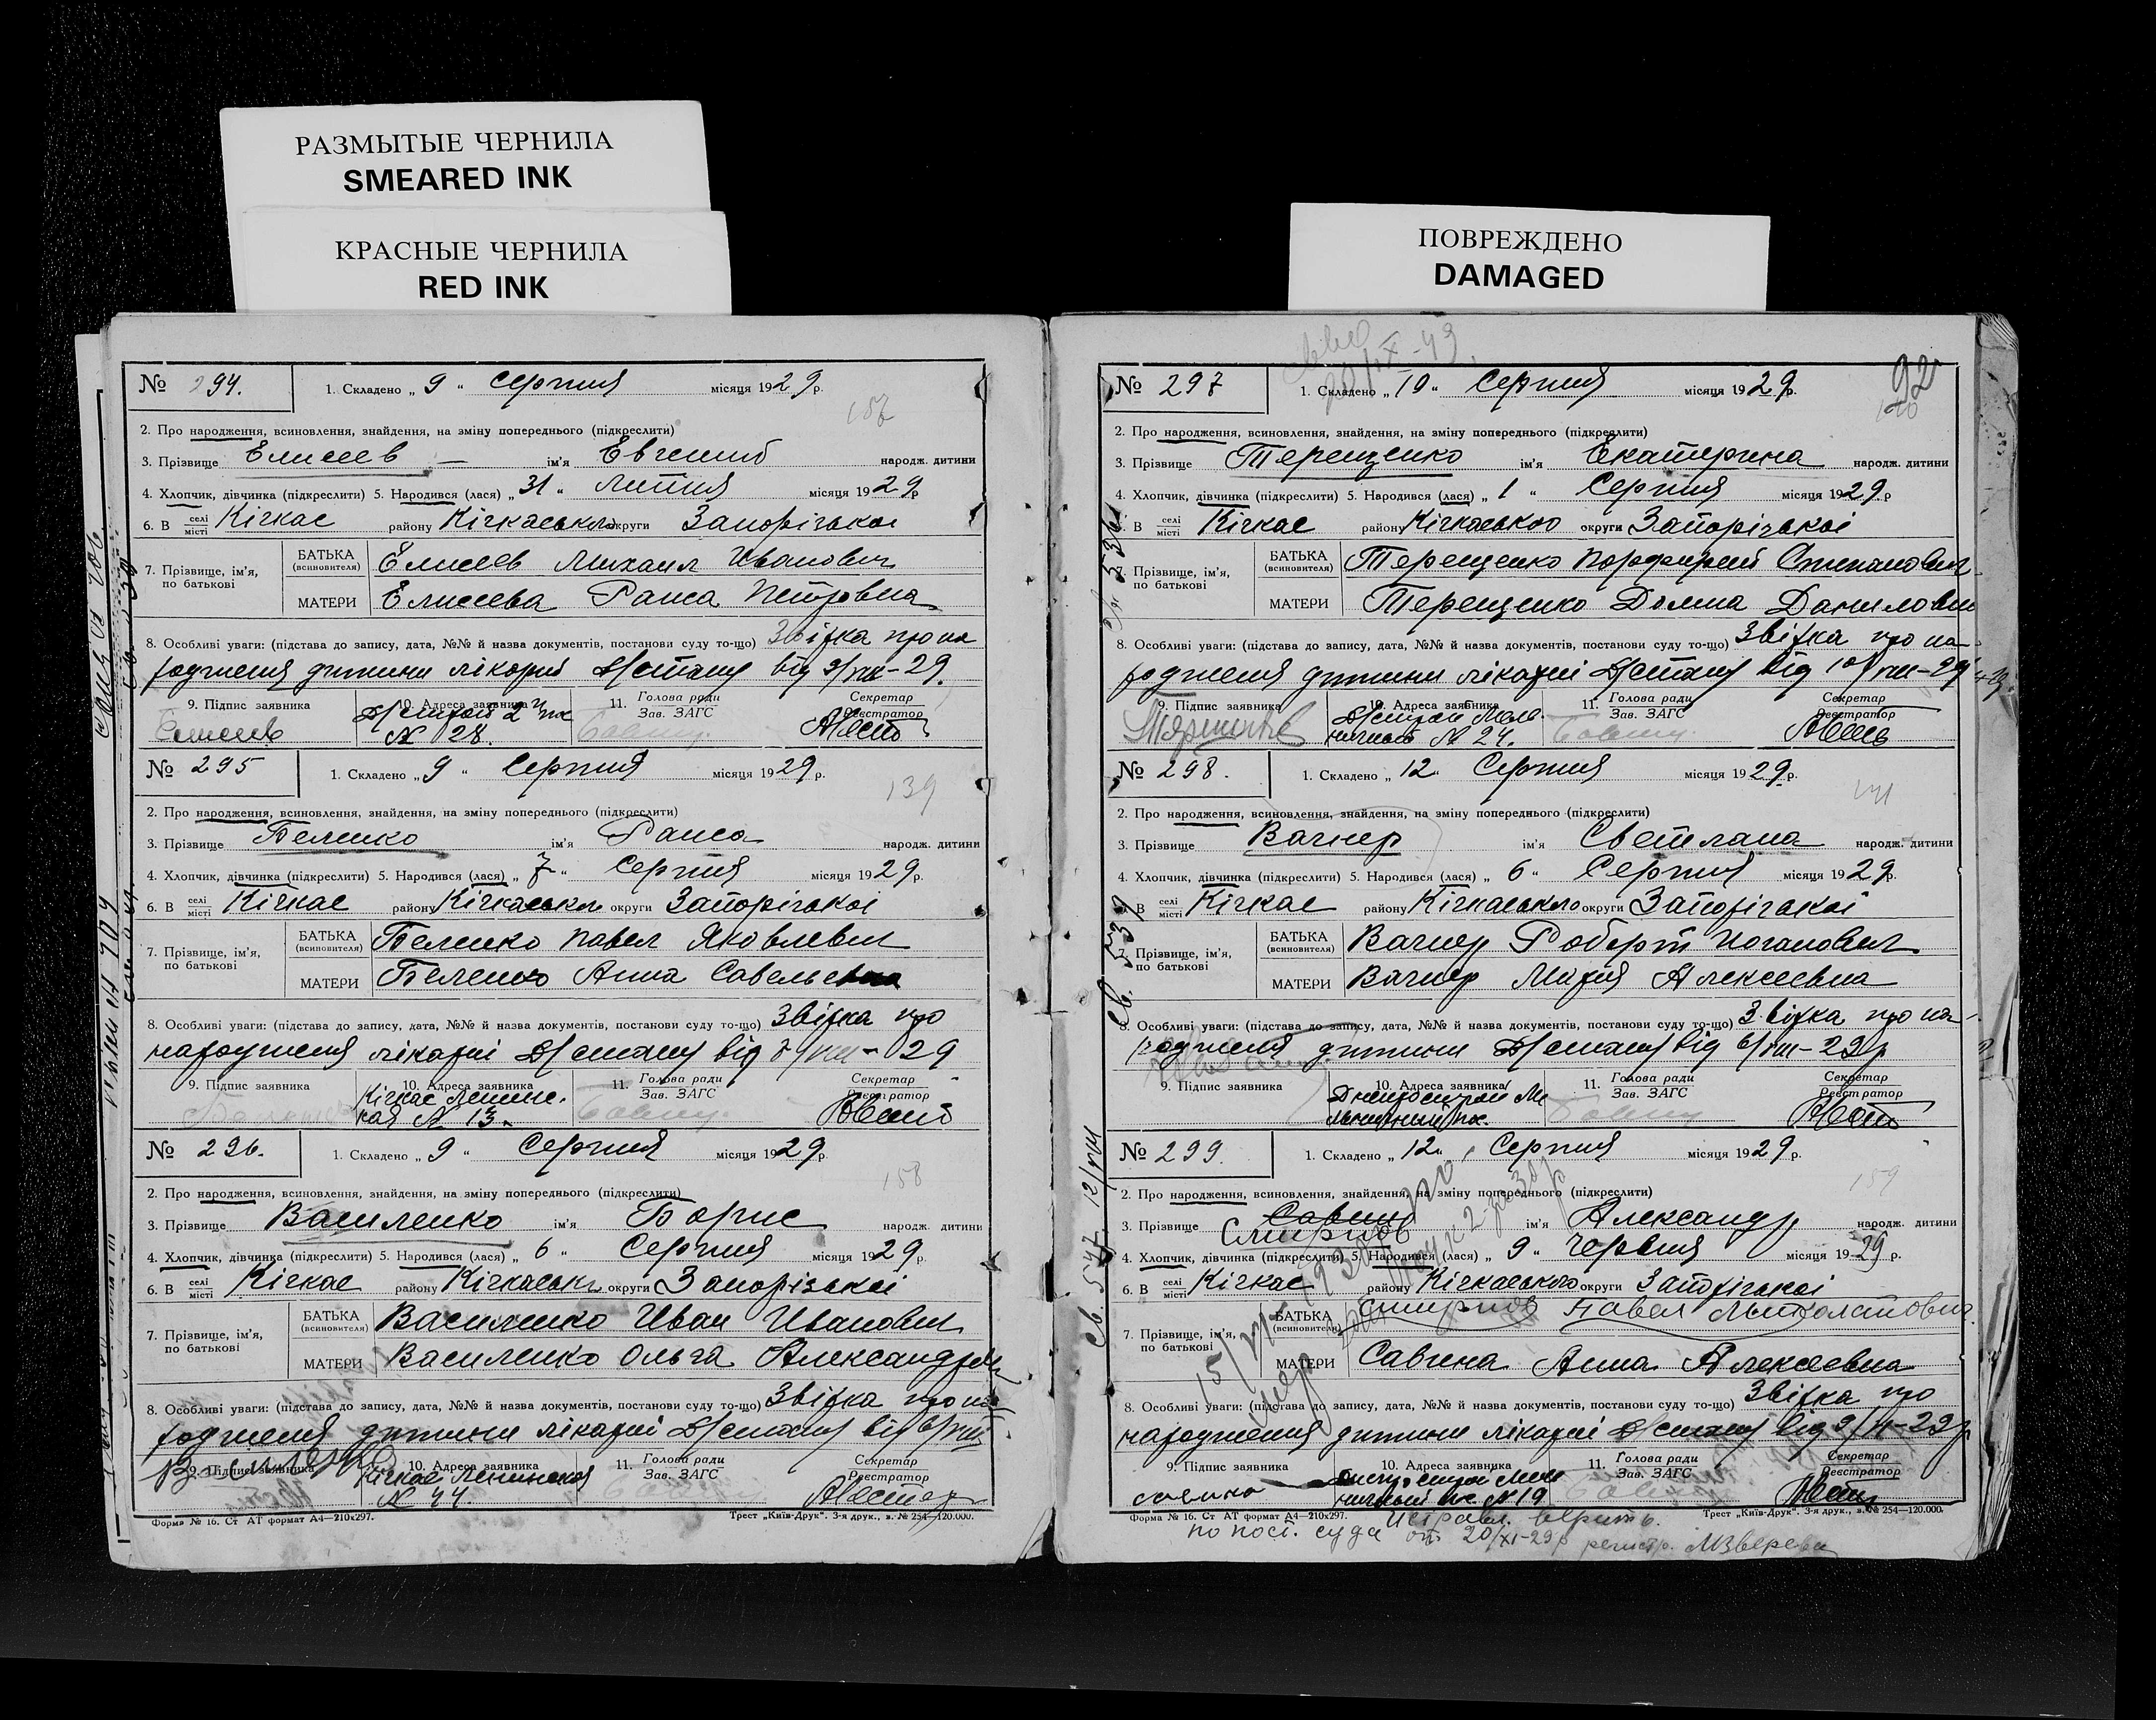 РАЗМЫТЫЕ ЧЕРНИЛА
SMEARED INK
КРАСНЫЕ ЧЕРНИЛА
RED INK
ПОВРЕЖДЕНО
DAMAGED
№ 294. 1. Складено „ 9 “ Серпня місяця 1929 р.
2. Про народження, всиновлення, знайдення, на зміну попереднього (підкреслити)
3. Прізвище Елисеев ім'я Евгений народж. дитини
4. Хлопчик, дівчинка (підкреслити) 5. Народився (лася) „ 31 “ Липня місяця 1929 р
6. В селі місті Кічкас району Кічкаського округи Запорізької
7. Прізвище, ім'я, по батькові
БАТЬКА (всиновителя) Елисеев Михаил Иванович
МАТЕРИ Елисеева Раиса Петровна
8. Особливі уваги: (підстава до запису, дата, №№ й назва документів, постанови суду то-що) Звістка про на
родження дитини лікарні від 9/VIII-29.
9. Підпис заявника Елисеев 10. Адреса заявника № 28. 11. Голова ради Зав. ЗАГС Секретар Реєстратор
№ 295 1. Складено „ 9 “ Серпня місяця 1929 р.
139
2. Про народження, всиновлення, знайдення, на зміну попереднього (підкреслити)
3. Прізвище Беленко ім'я Раиса народж. дитини
4. Хлопчик, дівчинка (підкреслити) 5. Народився (лася) „ 7 “ Серпня місяця 1929 р.
6. В селі місті Кічкас району Кічкаського округи Запорізької
7. Прізвище, ім'я, по батькові
БАТЬКА (всиновителя) Беленко Павел Яковлевич
МАТЕРИ Беленко Анна Савельевна
8. Особливі уваги: (підстава до запису, дата, №№ й назва документів, постанови суду то-що) Звістка про
народження лікарні від 7/VIII-29
9. Підпис заявника 10. Адреса заявника Кічкас Ленинс. кая № 13. 11. Голова ради Зав. ЗАГС Секретар Реєстратор
№ 296. 1. Складено „ 9 “ Серпня місяця 1929 р.
158
2. Про народження, всиновлення, знайдення, на зміну попереднього (підкреслити)
3. Прізвище Василенко ім'я Борис народж. дитини
4. Хлопчик, дівчинка (підкреслити) 5. Народився (лася) „ 6 “ Серпня місяця 1929 р.
6. В селі місті Кічкас району Кічкаськ. округи Запорізької
7. Прізвище, ім'я, по батькові
БАТЬКА (всиновителя) Василенко Иван Иванович
МАТЕРИ Василенко Ольга
8. Особливі уваги: (підстава до запису, дата, №№ й назва документів, постанови суду то-що) Звістка про на
родження дитини лікарні від 6/VIII
9. Підпис заявника 10. Адреса заявника Кічкас Ленинская № 44. 11. Голова ради Зав. ЗАГС Секретар Реєстратор
Форма № 16. Ст АТ формат А4—210x297. Трест „Київ-Друк". 3-я друк., в. № 254—120.000.
92
№ 297 1. Складено „ 10 “ Серпня місяця 1929 р.
2. Про народження, всиновлення, знайдення, на зміну попереднього (підкреслити)
3. Прізвище Терещенко ім'я Екатерина народж. дитини
4. Хлопчик, дівчинка (підкреслити) 5. Народився (лася) „ 1 “ Серпня місяця 1929 р
6. В селі місті Кічкас району Кічкаського округи Запорізької
7. Прізвище, ім'я, по батькові
БАТЬКА (всиновителя) Терещенко Порфирий Степанович
МАТЕРИ Терещенко Домна Даниловна
8. Особливі уваги: (підстава до запису, дата, №№ й назва документів, постанови суду то-що) Звістка про на-
родження дитини лікарні від 10/VIII-29
9. Підпис заявника 10. Адреса заявника № 24. 11. Голова ради Зав. ЗАГС Секретар Реєстратор
№ 298. 1. Складено „ 12 “ Серпня місяця 1929 р.
2. Про народження, всиновлення, знайдення, на зміну попереднього (підкреслити)
3. Прізвище Вагнер ім'я Светлана народж. дитини
4. Хлопчик, дівчинка (підкреслити) 5. Народився (лася) „ 6 “ Серпня місяця 1929 р.
6. В селі місті Кічкас району Кічкаського округи Запорізької
7. Прізвище, ім'я, по батькові
БАТЬКА (всиновителя) Вагнер Роберт Иоганович
МАТЕРИ Вагнер Мария Алексеевна
8. Особливі уваги: (підстава до запису, дата, №№ й назва документів, постанови суду то-що) Звістка про на-
родження дитини від 6/VIII-29р
9. Підпис заявника 10. Адреса заявника 11. Голова ради Зав. ЗАГС Секретар Реєстратор
№ 299. 1. Складено „ 12 “ Серпня місяця 1929 р.
159
2. Про народження, всиновлення, знайдення, на зміну попереднього (підкреслити)
3. Прізвище Смирнов ім'я Александр народж. дитини
4. Хлопчик, дівчинка (підкреслити) 5. Народився (лася) „ 9 “ Червня місяця 1929 р.
6. В селі місті Кічкас району Кічкаського округи Запорізької
7. Прізвище, ім'я, по батькові
БАТЬКА (всиновителя) Смирнов Павел
МАТЕРИ Савина Анна Алексеевна
8. Особливі уваги: (підстава до запису, дата, №№ й назва документів, постанови суду то-що) Звістка про
народження дитини лікарні від
9. Підпис заявника 10. Адреса заявника № 19 11. Голова ради Зав. ЗАГС Секретар Реєстратор
Форма № 16. Ст АТ формат А4—210x297. Трест „Київ-Друк". 3-я друк., в. № 254—120.000.
Исправл. верить.
по пост. суда от 20/XI-29р